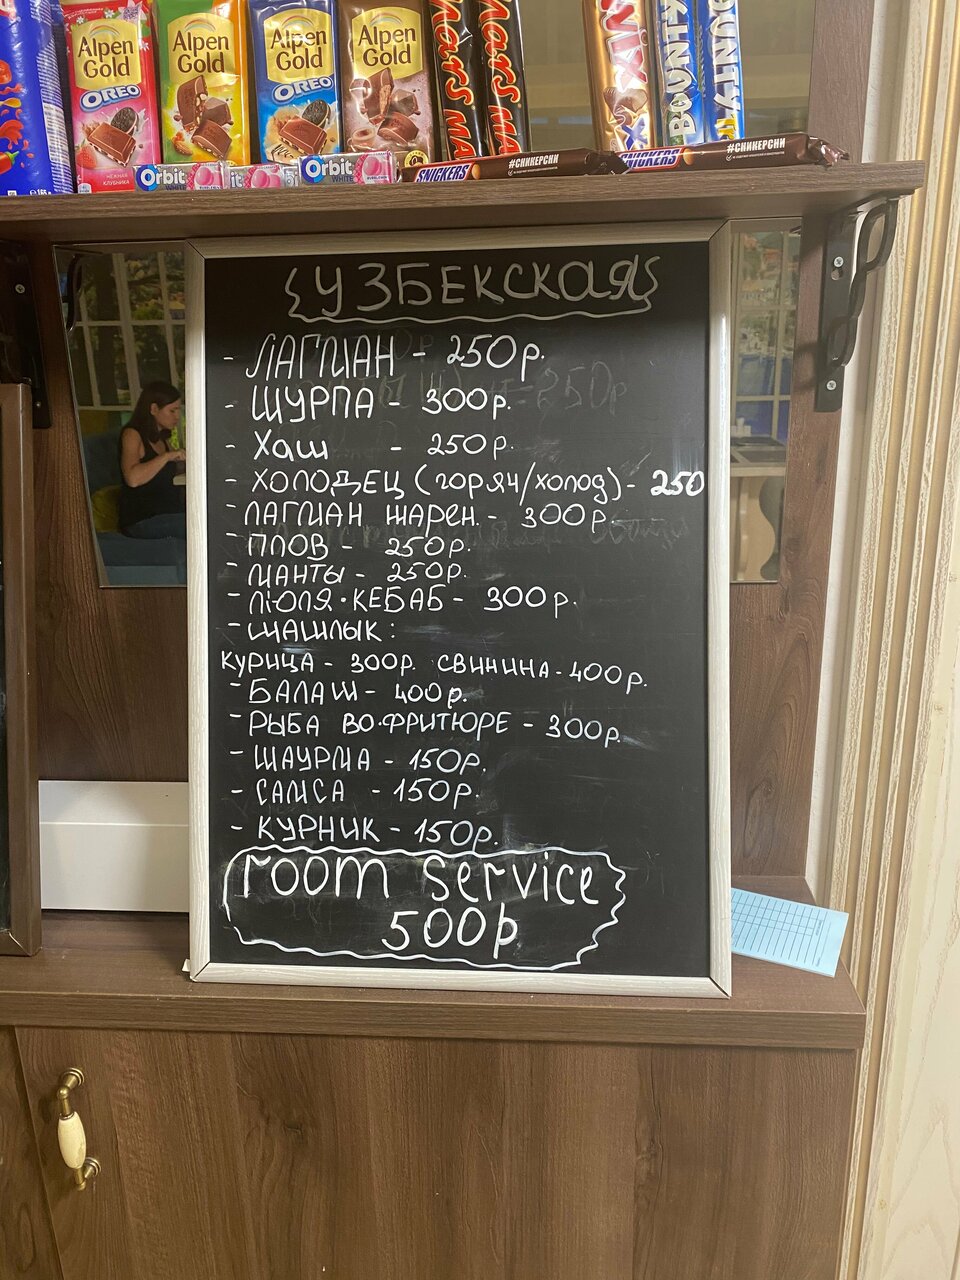 Alpen Gold OREO
Alpen Gold
Alpen Gold OREO
Alpen Gold
Mars MA
Mars MA
BOUNTY
BOUNTY
НЕЖНАЯ КЛУБНИКА
Orbit WHITE
Orbit WHITE
SNICKERS #СНИКЕРСНИ
SNICKERS #СНИКЕРСНИ
УЗБЕКСКАЯ
- ЛАГМАН - 250р.
- ШУРПА - 300р.
- Хаш - 250р.
- ХОЛОДЕЦ (горяч/холод) - 250
- ЛАГМАН ЖАРЕН. - 300р.
- ПЛОВ - 250р.
- МАНТЫ - 250р.
- ЛЮЛЯ-КЕБАБ - 300р.
- ШАШЛЫК:
КУРИЦА - 300р. СВИНИНА - 400р.
- БАЛАШ - 400р.
- РЫБА ВО-ФРИТЮРЕ - 300р.
- ШАУРМА - 150р.
- САМСА - 150р.
- КУРНИК - 150р.
room service
500р